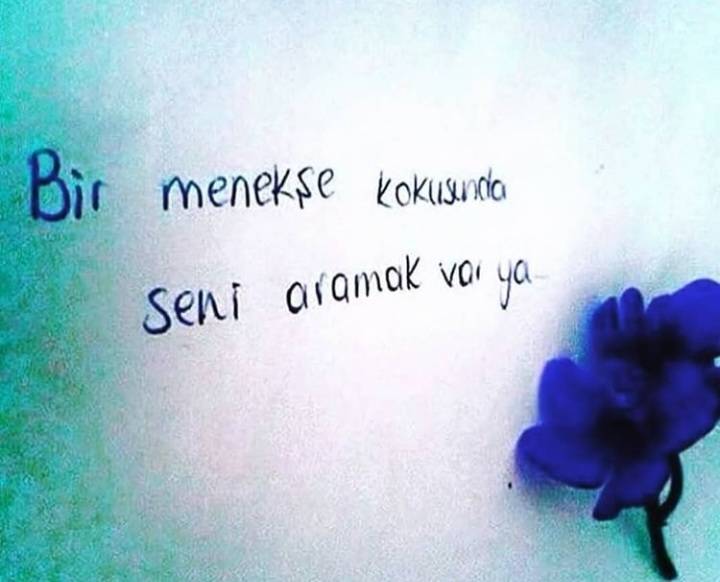 Bir menekşe kokusunda
seni aramak var ya